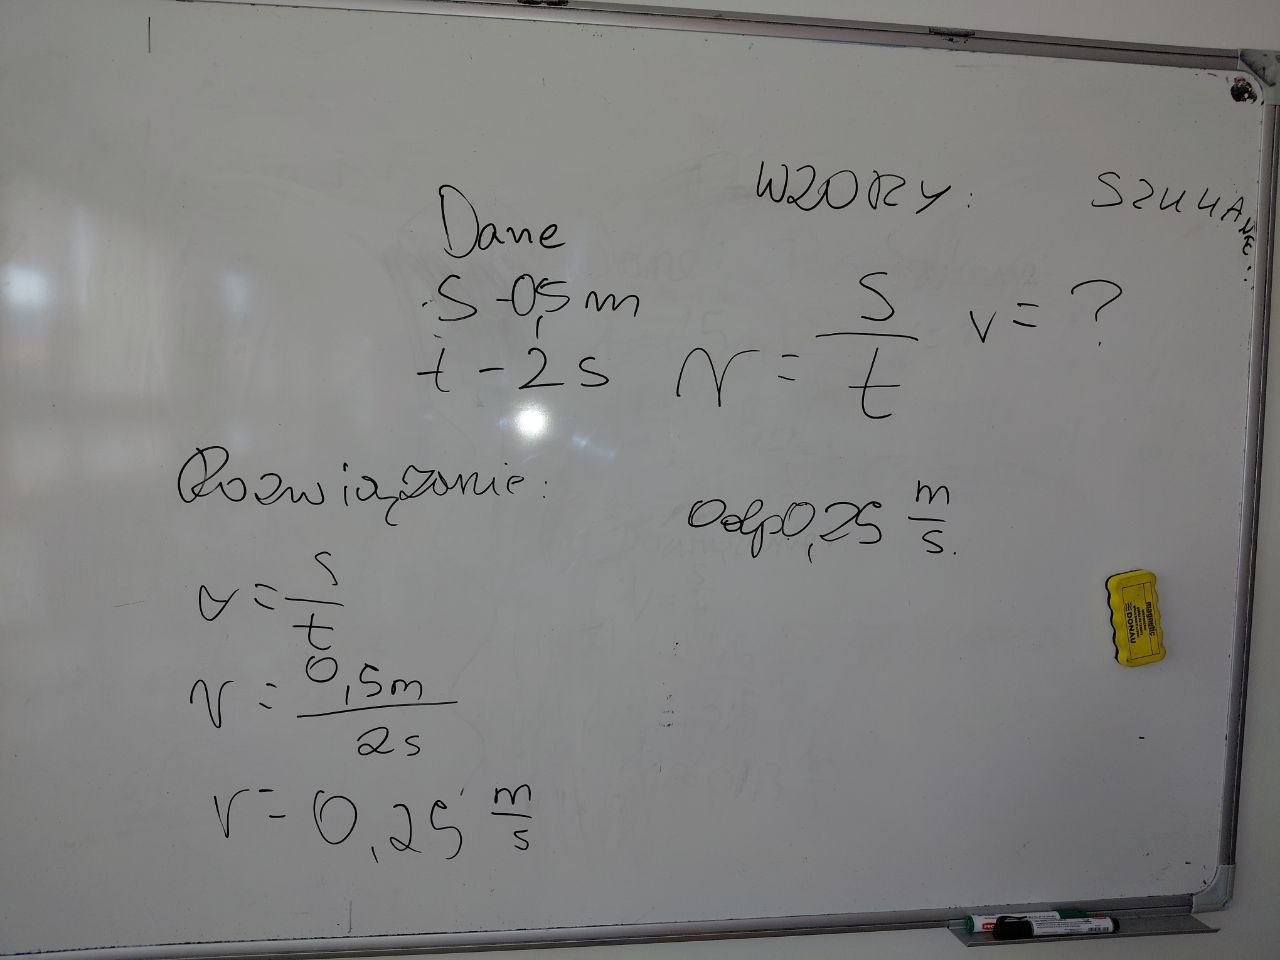 WZORY: SZUKANE:
Dane
S - 0,5 m
t - 2 s
v = s/t
v = ?
Rozwiązanie:
Odp 0,25 m/s.
v = s/t
v = 0,5m/2s
v = 0,25 m/s
magnetic
DONAU